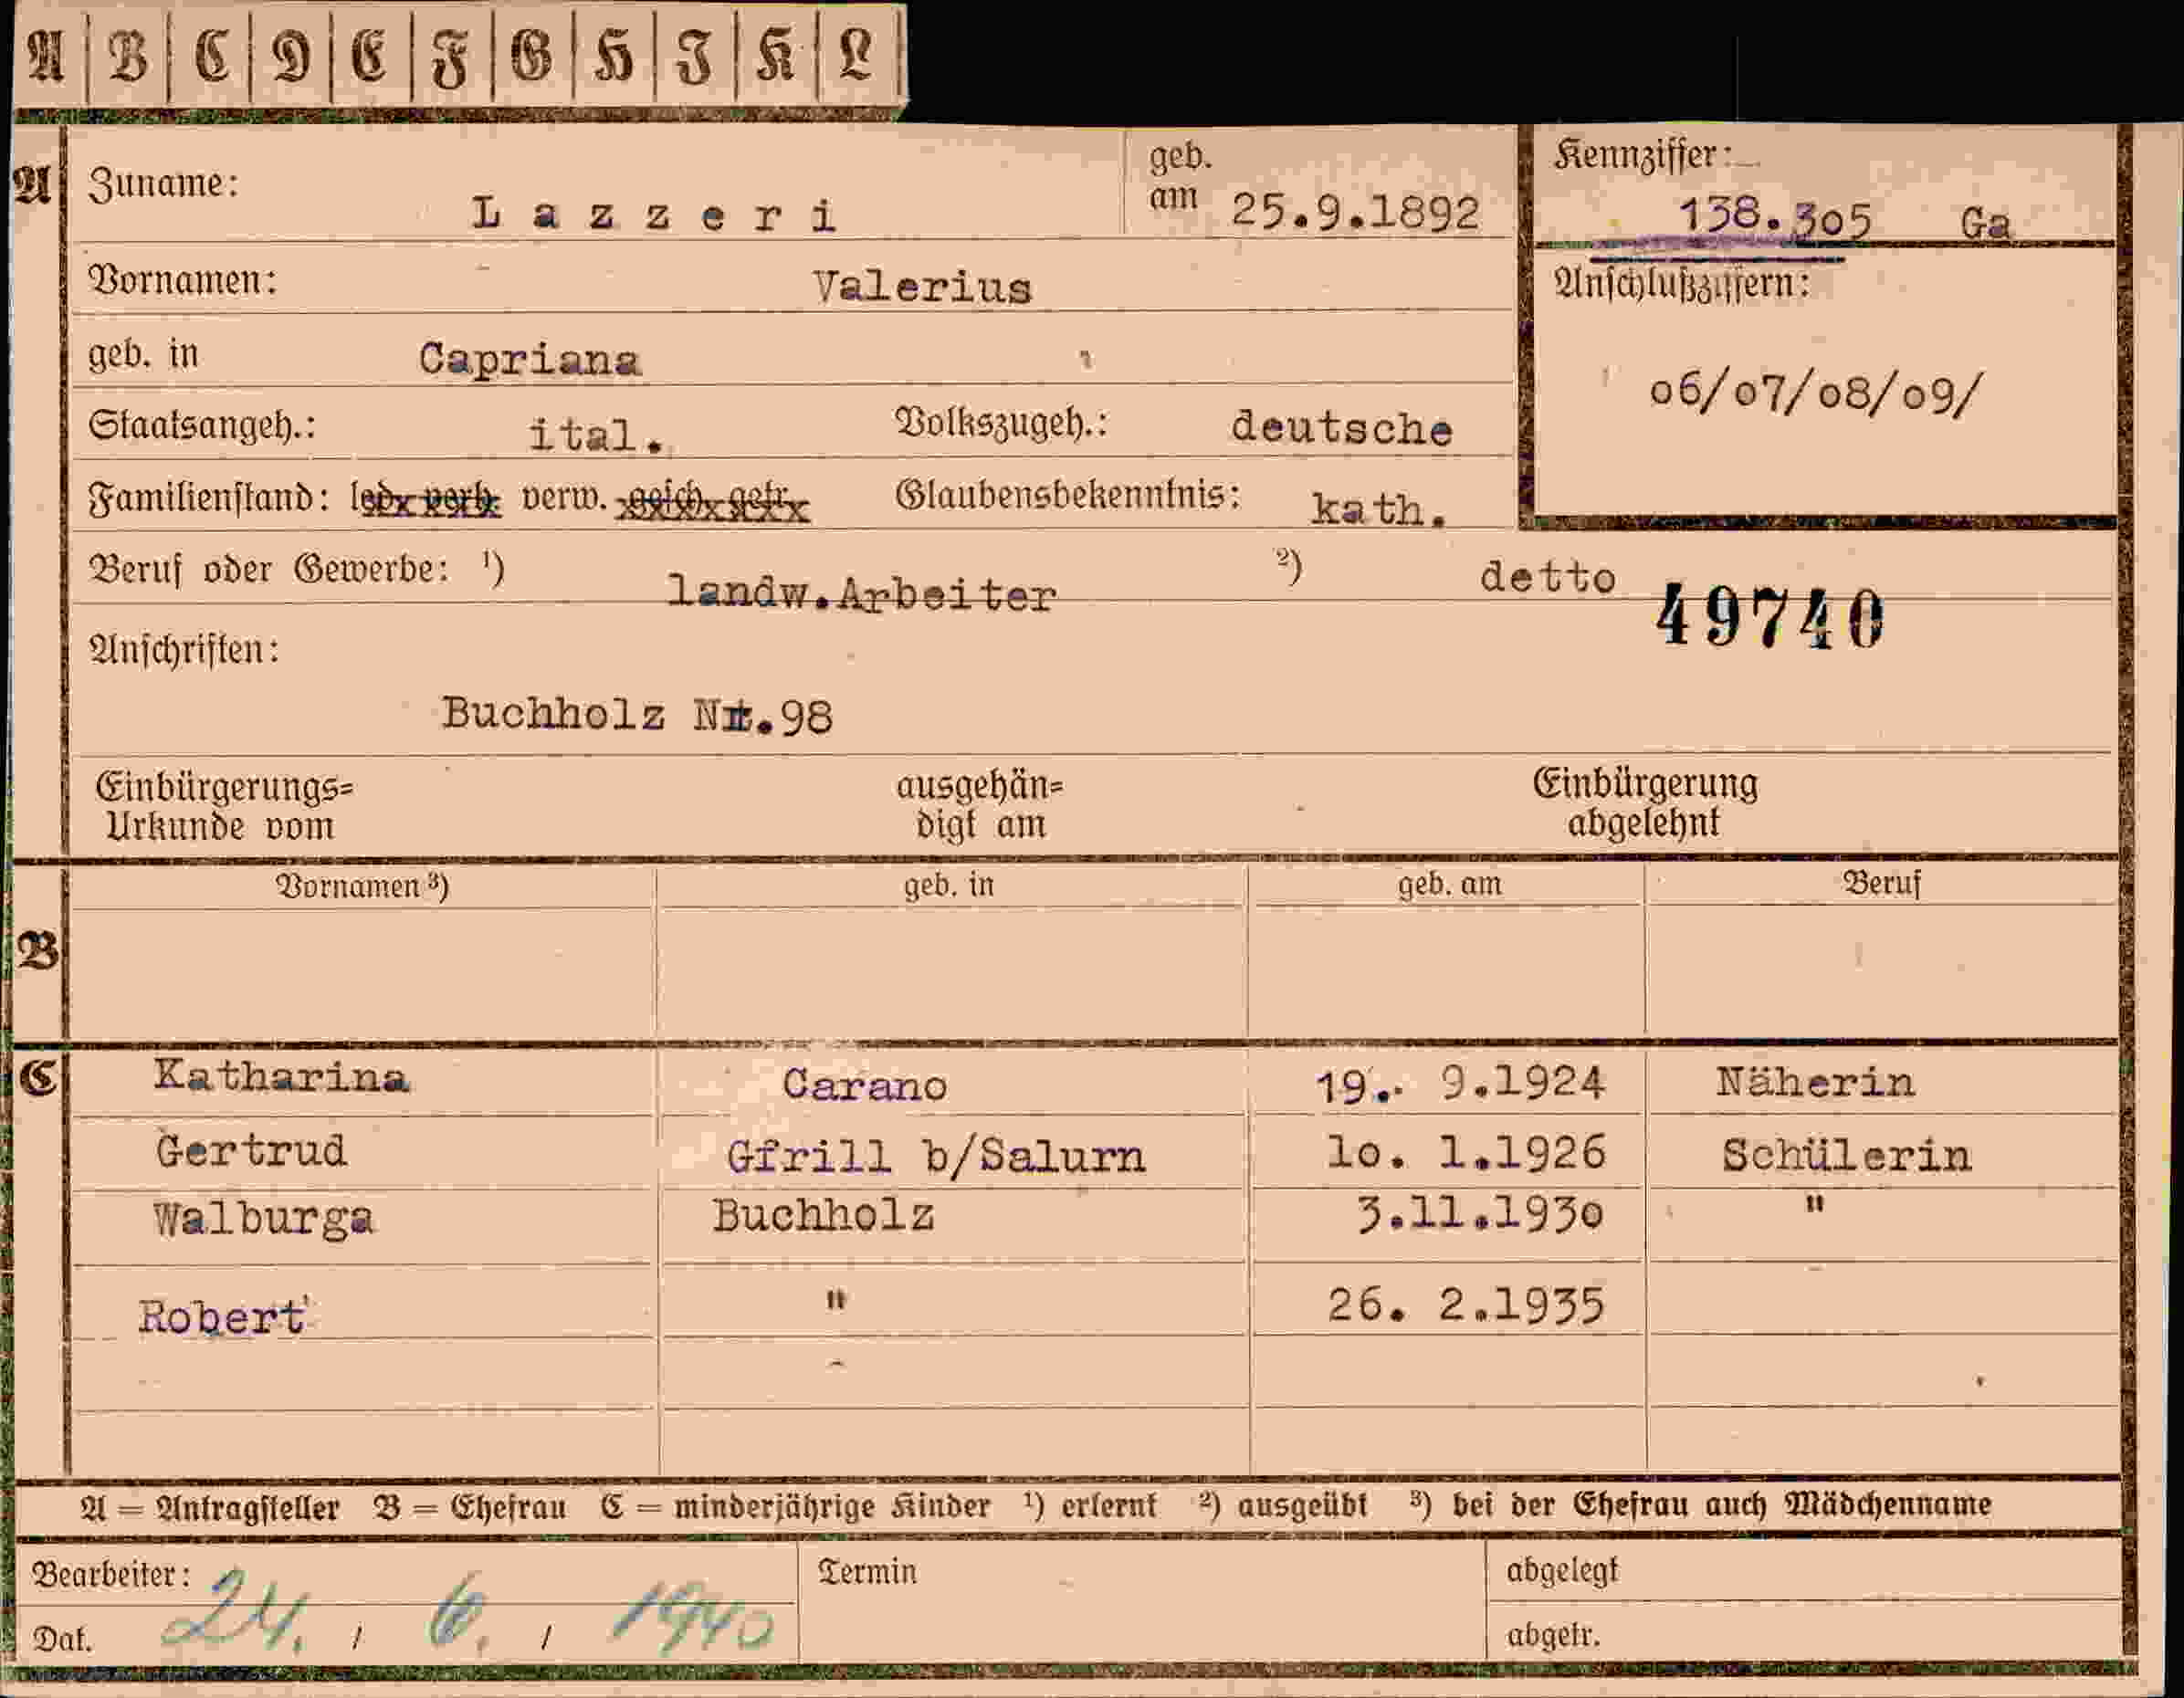 A B C D E F G H I K L
A Zuname: Lazzeri geb. am 25.9.1892 Kennziffer: 138.305 Ga
Vornamen: Valerius Anschlußziffern:
geb. in Capriana 06/07/08/09/
Staatsangeh.: ital. Volkszugeh.: deutsche
Familienstand: led. verh. verw. gesch. getr. Glaubensbekenntnis: kath.
Beruf oder Gewerbe: 1) landw.Arbeiter 2) detto
49740
Anschriften:
Buchholz Nr.98
Einbürgerungs= ausgehän= Einbürgerung
Urkunde vom digt am abgelehnt
Vornamen 3) geb. in geb. am Beruf
B
C Katharina Carano 19. 9.1924 Näherin
Gertrud Gfrill b/Salurn 10. 1.1926 Schülerin
Walburga Buchholz 3.11.1930 "
Robert " 26. 2.1935
A = Antragsteller B = Ehefrau C = minderjährige Kinder 1) erlernt 2) ausgeübt 3) bei der Ehefrau auch Mädchenname
Bearbeiter: Termin abgelegt
Dat. 24. / 6. / 1940 abgetr.